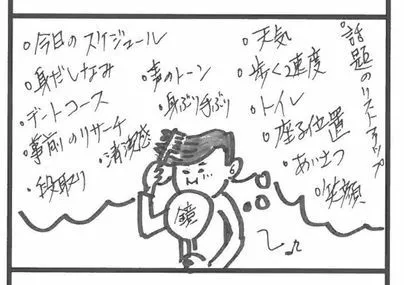 話題のリストアップ
○天気
○歩く速度
○トイレ
○座る位置
○あいさつ
○笑顔
○今日のスケジュール
○身だしなみ
○デートコース
○事前のリサーチ
○段取り
○声のトーン
○身ぶり手ぶり
○清潔感
鏡